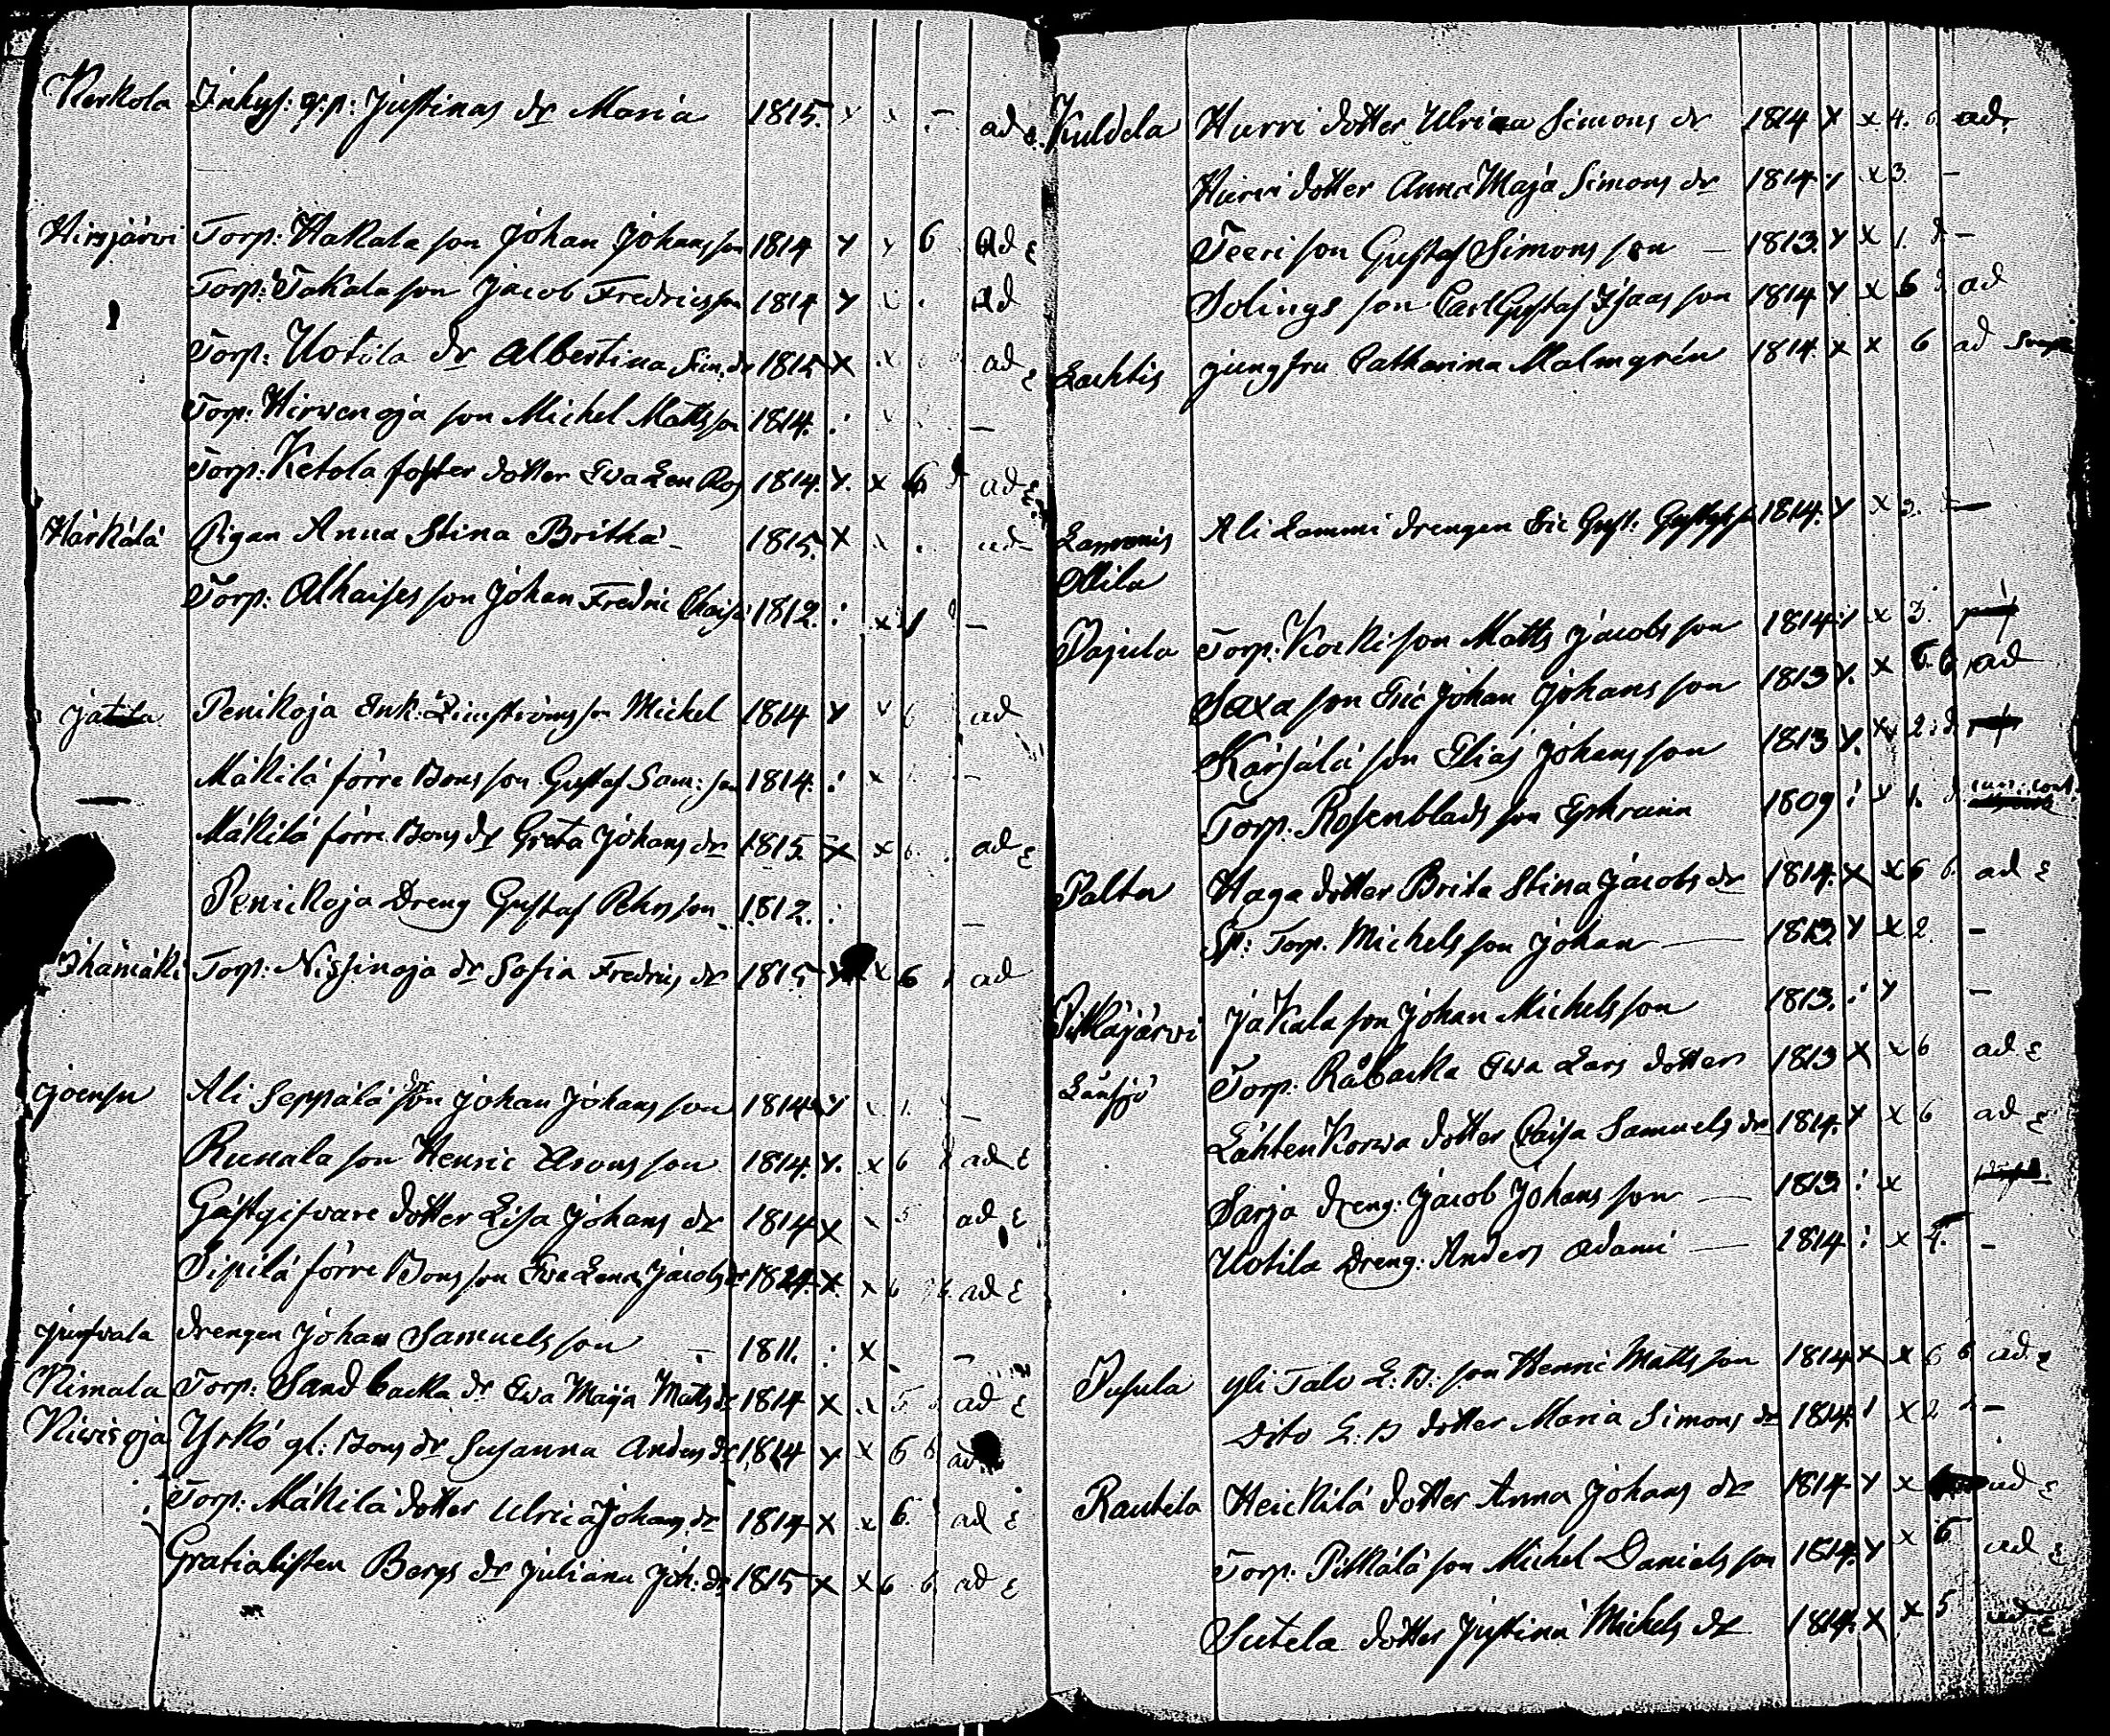 Kerkola Inhys: q.p: Justinas dr Maria 1815. x x - ad
Hirsjärvi Torp: Hakala son Johan Johansson 1814 x x 6 ad
Torp: Takala son Jacob Fredricsson 1814 x x ad
Torp: Uotila dr Albertina Sim. dr 1815 x x ad
Torp: Hirvenoja son Michel Matsson 1814. -
Torp: Ketola foster dotter Eva Len Ros 1814. x. x 6 ad
Härkälä Pigan Anna Stina Britha - 1815. x x ad
Torp: Alhaises son Johan Fredric 1812. x 1 -
Jatila Penikoja Ink: son Michel 1814 x x 6 ad
Mäkilä förre Bons son Gustaf Sam: son 1814. x -
Mäkilä förre Bons dr Greta Johans dr 1815. x x 6. ad
Penikoja Dreng Gustaf Pehrsson 1812. -
Ihamäki Torp: Nissinoja dr Sofia Fredrics dr 1815 x x 6 ad
Joensu Ali Seppälä son Johan Johansson 1814 x x 1. -
Runala son Henric Aronsson 1814. x. x 6 ad
Gästgifvare dotter Lisa Johans dr 1814 x x 5 ad
Sipilä förre Bons son Eva Lena Jacobs dr 1814. x. x 6 6. ad
drengen Johan Samuelsson 1811. x -
Kimala Torp: Sandbacka dr Ewa Maija Matts dr 1814 x x 5 ad
Kivisoja Yrkö gl: Bons dr Susanna Anders dr 1814 x x 6 6 ad
Torp: Mäkilä dotter Ulrica Johans dr 1814 x x 6. ad
Gratialisten Bergs dr Juliana Joh: dr 1815 x x 6 6 ad
Kuldela Hurri dotter Ulrica Simons dr 1814 x x 4. 6. ad
Hurri dotter Anna Maja Simons dr 1814 x x 3 -
Teeri son Gustaf Simonsson - 1813. x x 1. -
Solings son Carl Gustaf Isaacsson 1814 x x 6 ad
Lachtis jungfru Catharina Malmgrén 1814. x x 6 ad
Lammis Ali Lammi drengen Eric Gust: Gustafsson 1814. x x 2. -
Ollila
Pajula Torp: Kockison Matts Jacobsson 1814 x 3.
Saxa son Eric Johan Johansson 1813 x. x 6. 6 ad
Kärjälä son Elias Johansson 1813 x. x 2.
Torp. Rosenblads son Ephraim 1809 x 1.
Palta Haga dotter Brita Stina Jacobs dr 1814. x x 6 6. ad
Sp: Torp. Michelsson Johan - 1813. x x 2. -
Pitkäjärvi Jakala son Johan Michelsson 1813. x -
Länsjö Torp. Råbacka Ewa Lars dotter 1813 x x 6 ad
Lähtenkorwa dotter Caisa Samuels dr 1814. x x 6 ad
Sarja dreng: Jacob Johansson - 1813. x
Uotila Dreng: Anders Adami - 1814 x 4. -
Pusula Yli Talo L: B: son Henric Mattsson 1814 x x 6 6 ad
Dito L: B dotter Maria Simons dr 1814. x 2 -
Rautila Heickilä dotter Anna Johans dr 1814 x x ad
Torp. Pitkälä son Michel Danielsson 1814. x x 6 ad
Sutela dotter Justina Michels dr 1814. x x 5 ad